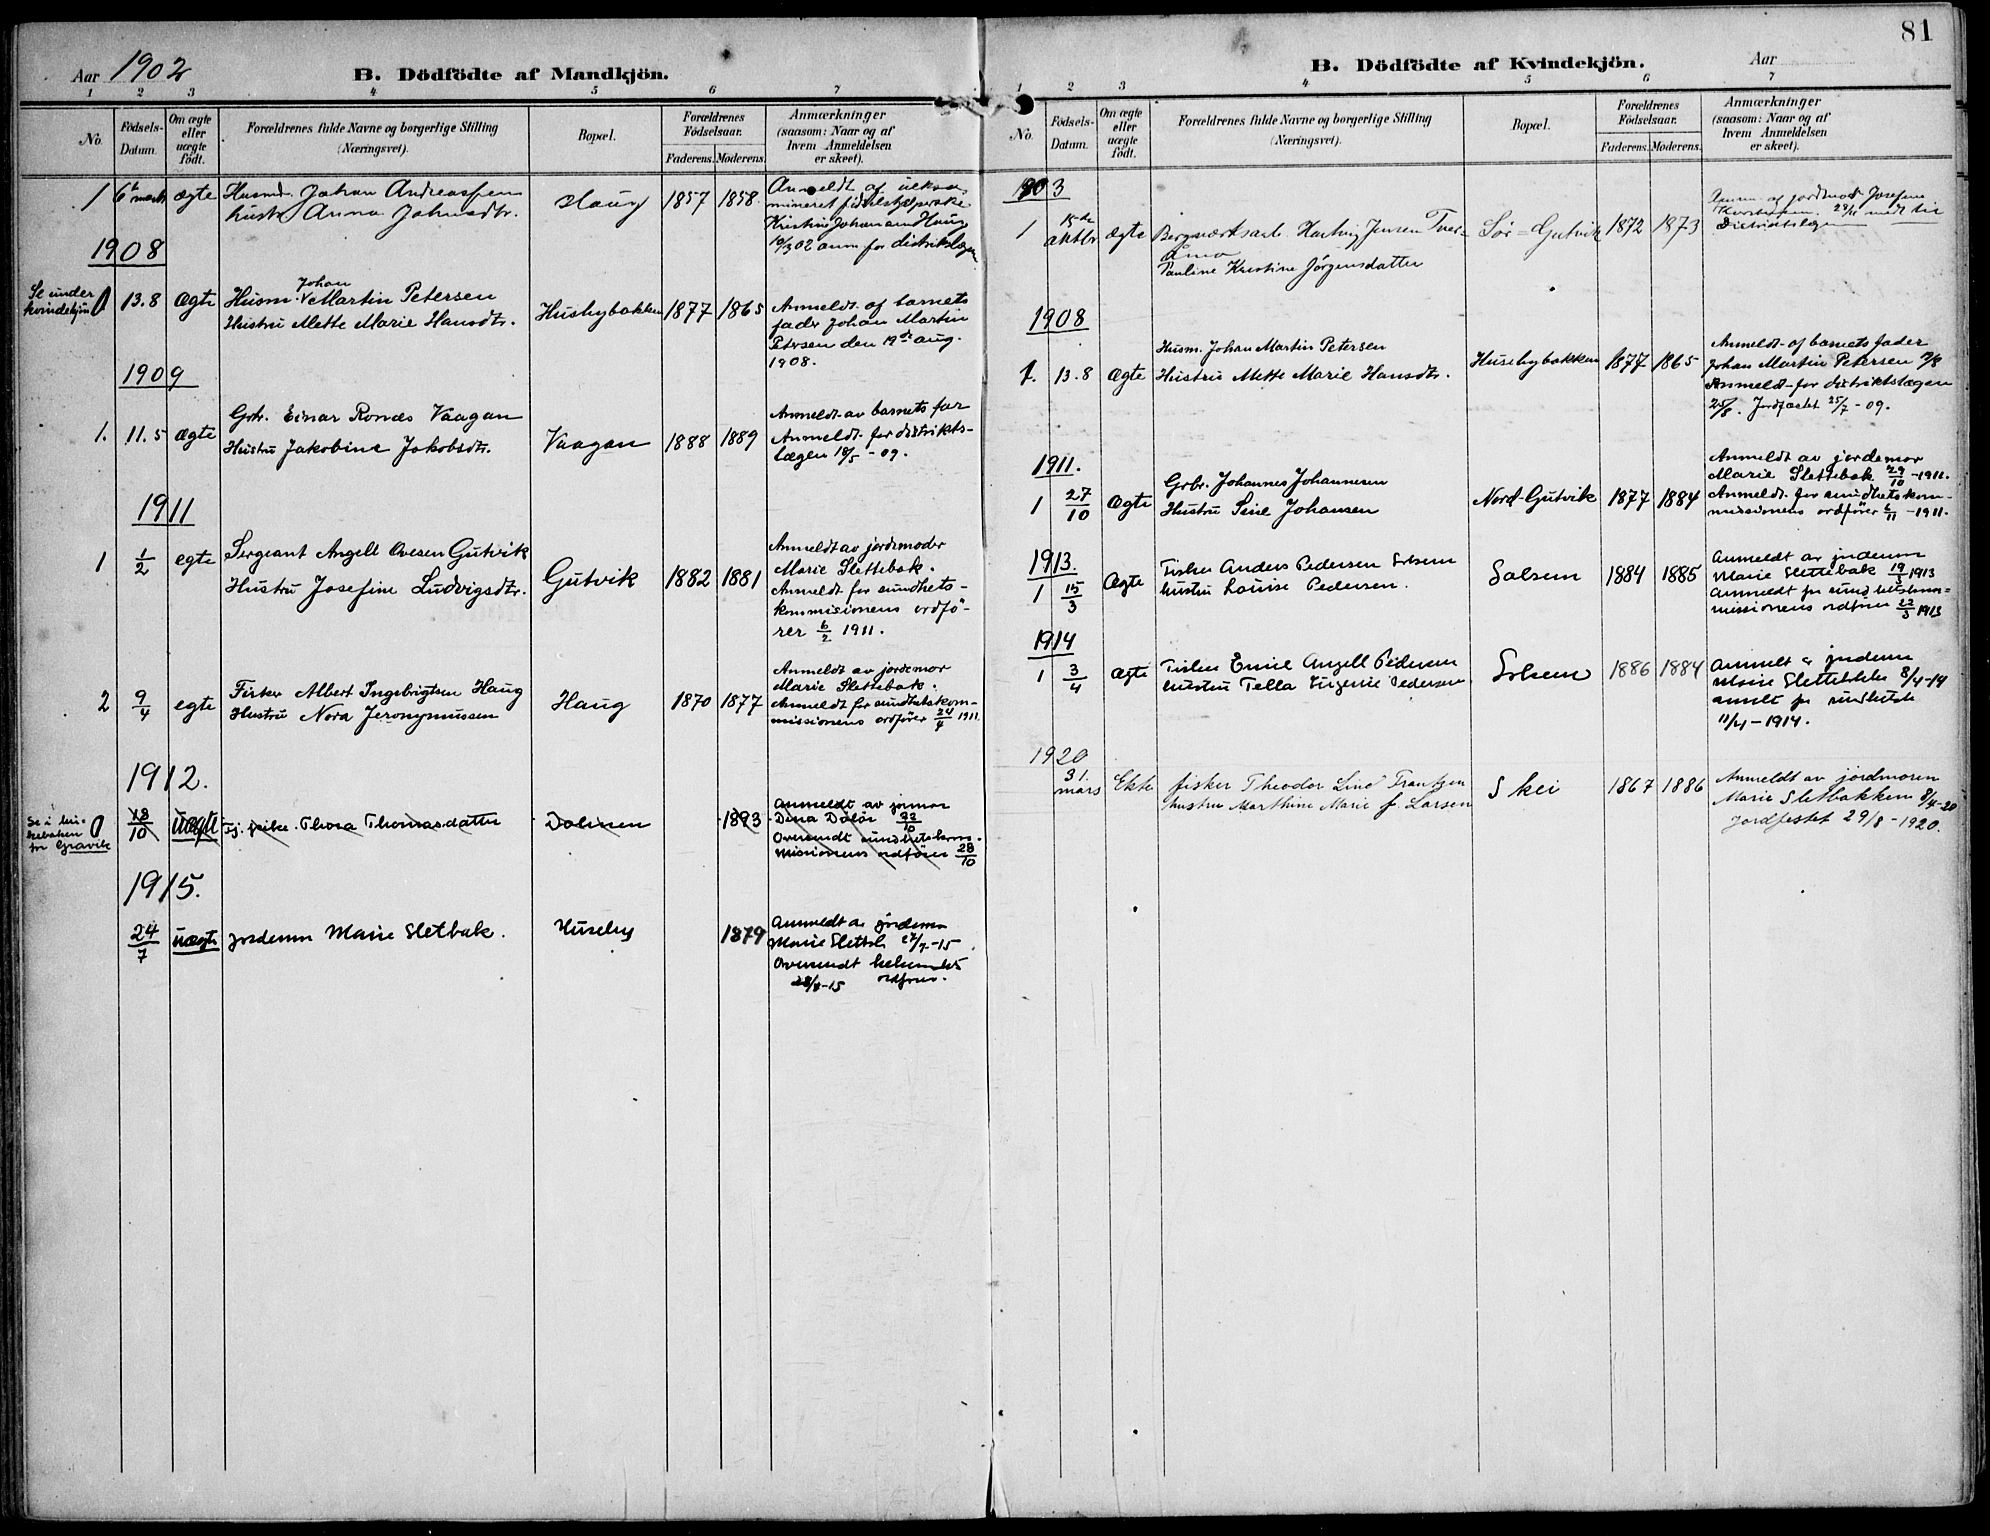 Aar 1902
B. Dödfödte af Mandkjön.
1 2 3 4 5 6 7
No.
Födsels-Datum.
Om ægte eller uægte födt.
Forældrenes fulde Navne og borgerlige Stilling (Næringsvei).
Bopæl.
Forældrenes Födselsaar.
Faderens. Moderens.
Anmærkninger (saasom: Naar og af hvem Anmeldelsen er skeet).
1 6te marts ægte Husmd. Johan Andreassen
hustr Anna Johnsdtr.
Haug 1857 1858
Anmeldt af
Kristine Haug
10/3 02 anm for distriktslægen
1908
Se under kvindekjön
0 13.8 Ægte Husm. Johan Martin Petersen
Hustru Mette Marie Hansdtr.
Husbybakken 1877 1865
Anmeldt af barnets
fader Johan Martin
Petersen den 19de aug.
1908.
1909
1. 11.5 ægte Grbr. Einar Ronæs Vaagan
Hustru Jakobine Jakobsdtr.
Vaagan 1888 1889
Anmeldt av barnets far
Anmeldt for distrikts-
lægen 18/5 - 09.
1911
1 1/2 egte Sergeant Angell Ovesen Gutvik
Hustru Josefine Ludvigsdtr.
Gutvik 1882 1881
Anmeldt av jordemoder
Marie Slettebak.
Anmeldt for sundhets-
kommisionens ordfö-
rer 6/2 1911.
2 9/4 egte Fisker Albert Ingebrigtsen Haug
Hustru Nora Jeronymussen
Haug 1870 1877
Anmeldt av jordemor
Marie Slettebak.
Anmeldt for sundhetskom-
missionens ordförer 24/4 1911.
1912.
Se i
Gravik
0 18/10 uægte Tj. pike. Thora Thomasdatter
Dolmen 1893
Anmeldt av jormor
Dina Dolör 22/10
Oversendt sundhetskom-
missionens ordförer 28/10
1915.
24/7 uægte jordemor Marie Sletbak.
Huseby 1879
Anmeldt av jordemor
Marie Slettb 27/7-15
Oversendt helserådets
ordfører.
81
B. Dödfödte af Kvindekjön.
Aar
1 2 3 4 5 6 7
No.
Födsels-Datum.
Om ægte eller uægte födt.
Forældrenes fulde Navne og borgerlige Stilling (Næringsvei).
Bopæl.
Forældrenes Födselsaar.
Faderens. Moderens.
Anmærkninger (saasom: Naar og af hvem Anmeldelsen er skeet).
1903
1 15de oktbr ægte Bergværksarb. Hartvig Jensen Tver-
åmo
Pauline Kristine Jörgensdatter
Sör-Gutvik 1872 1873
Anm af jordmor Josefine
meldt til
Distriktslægen
1908
1. 13.8 Ægte Husm. Johan Martin Petersen
Hustru Mette Marie Hansdtr.
Husebybakken 1877 1865
Anmeldt af barnets fader
Johan Martin Petersen 19/8
Anmeldt for distriktslægen
25/8. Jordfæstet 25/7 - 09.
1911.
1 27/10 Ægte Grbr. Johannes Johannesen
Hustru Sine Johansen
Nord-Gutvik 1877 1884
Anmeldt av jordemor
Marie Slettebak 29/10 - 1911.
Anmeldt for sundhetskom-
missionens ordförer 6/11 - 1911.
1913.
1 15/3 Ægte Fisker Anders Pedersen Solsem
hustru Louise Pedersen.
Solsem 1884 1885
Anmeldt av jordemor
Marie Slettebak 19/3 1913
Anmeldt for sundhetskom-
missionens ordförer 22/3 1913
1914
1 3/4 ægte Fisker Emil Angell Pedersen
hustru Tella Eugenie Pedersen
Solsem 1886 1884
Anmelt av jordemor
Marie Slettebakk 8/4-14
anmelt for sundhetsk
11/4 - 1914.
1920
31. mars Ekte fisker Theodor Lind Frantzen
hustru Marthine Marie f. Larsen
Skei 1867 1886
Anmeldt av jordmoren
Marie Sletbakken 8/4-20
Jordfestet 29/8 - 1920.